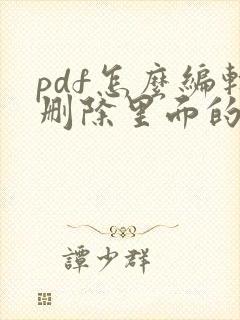 pdf怎麼編輯
刪除里面的
譚少群